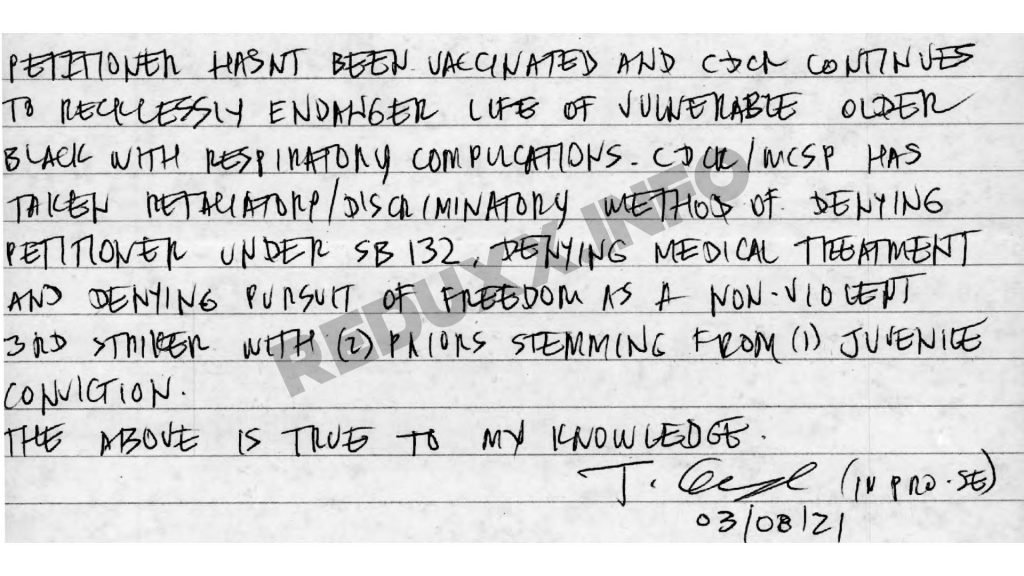 PETITIONER HASNT BEEN VACCINATED AND CDCR CONTINUES
TO RECKLESSLY ENDANGER LIFE OF VULNERABLE OLDER
BLACK WITH RESPIRATORY COMPLICATIONS. CDCR/MCSP HAS
TAKEN RETALIATORY/DISCRIMINATORY METHOD OF DENYING
PETITIONER UNDER SB 132. DENYING MEDICAL TREATMENT
AND DENYING PURSUIT OF FREEDOM AS A NON-VIOLENT
3RD STRIKER WITH (2) PRIORS STEMMING FROM (1) JUVENILE
CONVICTION.
THE ABOVE IS TRUE TO MY KNOWLEDGE.
T. (IN PRO-SE)
03/08/21
REDUXX.INFO